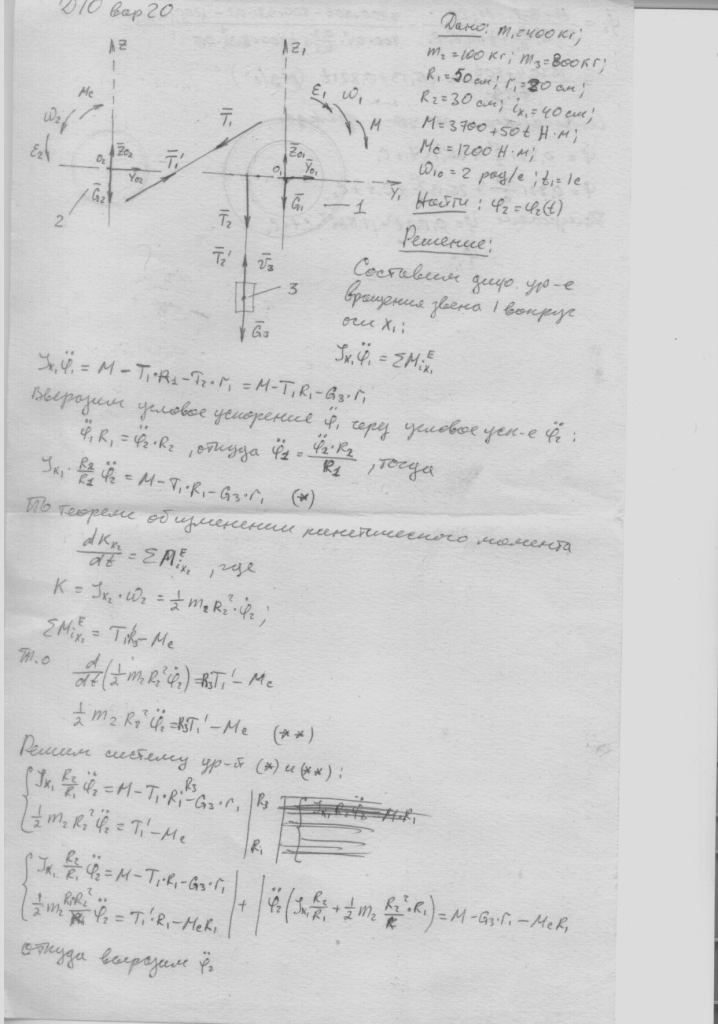 D10 вар 20
Дано: m₁=400 кг;
m₂=100 кг; m₃=800 кг;
R₁=50 см; r₁=20 см;
R₂=30 см; iₓ₁=40 см;
M=3700+50t Н·м;
Mc=1200 Н·м;
ω₁₀=2 рад/с; t₁=1с
Найти: φ₂=φ₂(t)
Решение:
Z
Z₁
Mc
ω₂
ε₂
T̄₁
T̄₁'
ε̄₁ ω₁
M
O₂
Z̄o₂
Ȳo₂
Ḡ₂
2
Z̄o₁
Ȳo₁
O₁
Ḡ₁
Ȳ₁
1
T̄₂
T̄₂'
v̄₃
3
Ḡ₃
Составим диф. ур-е
вращения звена 1 вокруг
оси x₁:
Jx₁φ̈₁ = ΣMᴱix₁
Jx₁φ̈₁ = M − T₁·R₁ − T₂·r₁ = M−T₁R₁−G₃·r₁
Выразим угловое ускорение φ̈₁ через угловое уск-е φ̈₂:
φ̈₁R₁ = φ̈₂·R₂, откуда φ̈₁ = φ̈₂·R₂/R₁, тогда
Jx₁·R₂/R₁ φ̈₂ = M−T₁·R₁−G₃·r₁ (*)
По теореме об изменении кинетического момента
dKx₂/dt = ΣMᴱix₂, где
K = Jx₂·ω₂ = 1/2 m₂R₂²·φ̇₂;
ΣMᴱix₂ = T₁'R₃−Mc
т.о d/dt(1/2 m₂R₂²φ̇₂)=R₃T₁'−Mc
1/2 m₂R₂²φ̈₂=R₃T₁'−Mc (**)
Решим систему ур-й (*) и (**):
{Jx₁ R₂/R₁ φ̈₂ = M−T₁·R₁−G₃·r₁ | R₃
1/2 m₂R₂²φ̈₂ = T₁'−Mc | R₁
{Jx₁ R₂/R₁ φ̈₂ = M−T₁·R₁−G₃·r₁
1/2 m₂ R₁R₂²/R₁ φ̈₂ = T₁'·R₁−McR₁ | + | φ̈₂(Jx₁ R₂/R₁ + 1/2 m₂ R₂²/R·R₁) = M−G₃·r₁−McR₁
откуда выразим φ̈₂